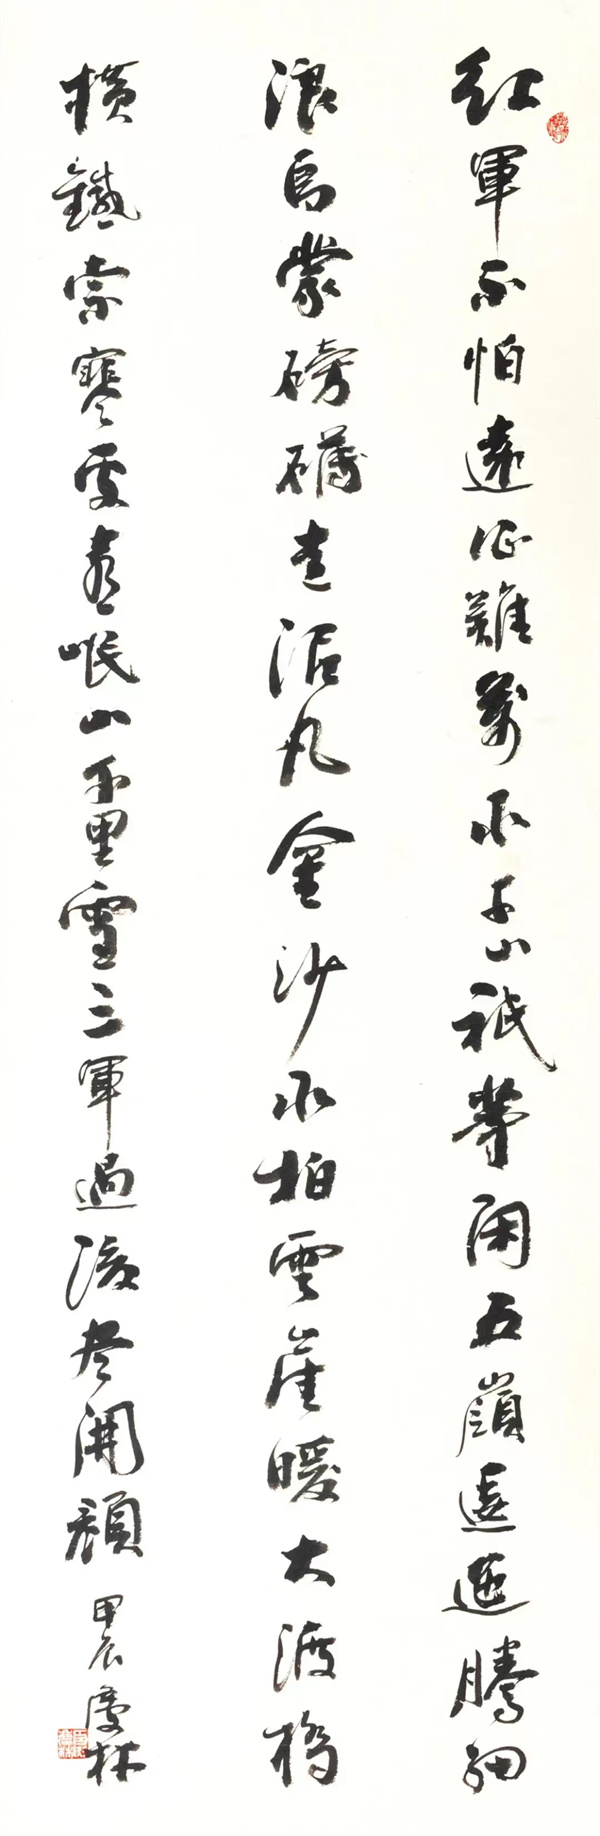 紅軍不怕遠征難萬水千山祇等閑五嶺逶迤騰細
浪烏蒙磅礴走泥丸金沙水拍雲崖暖大渡橋
橫鐵索寒更喜岷山千里雪三軍過後尽開顏
甲辰慶林